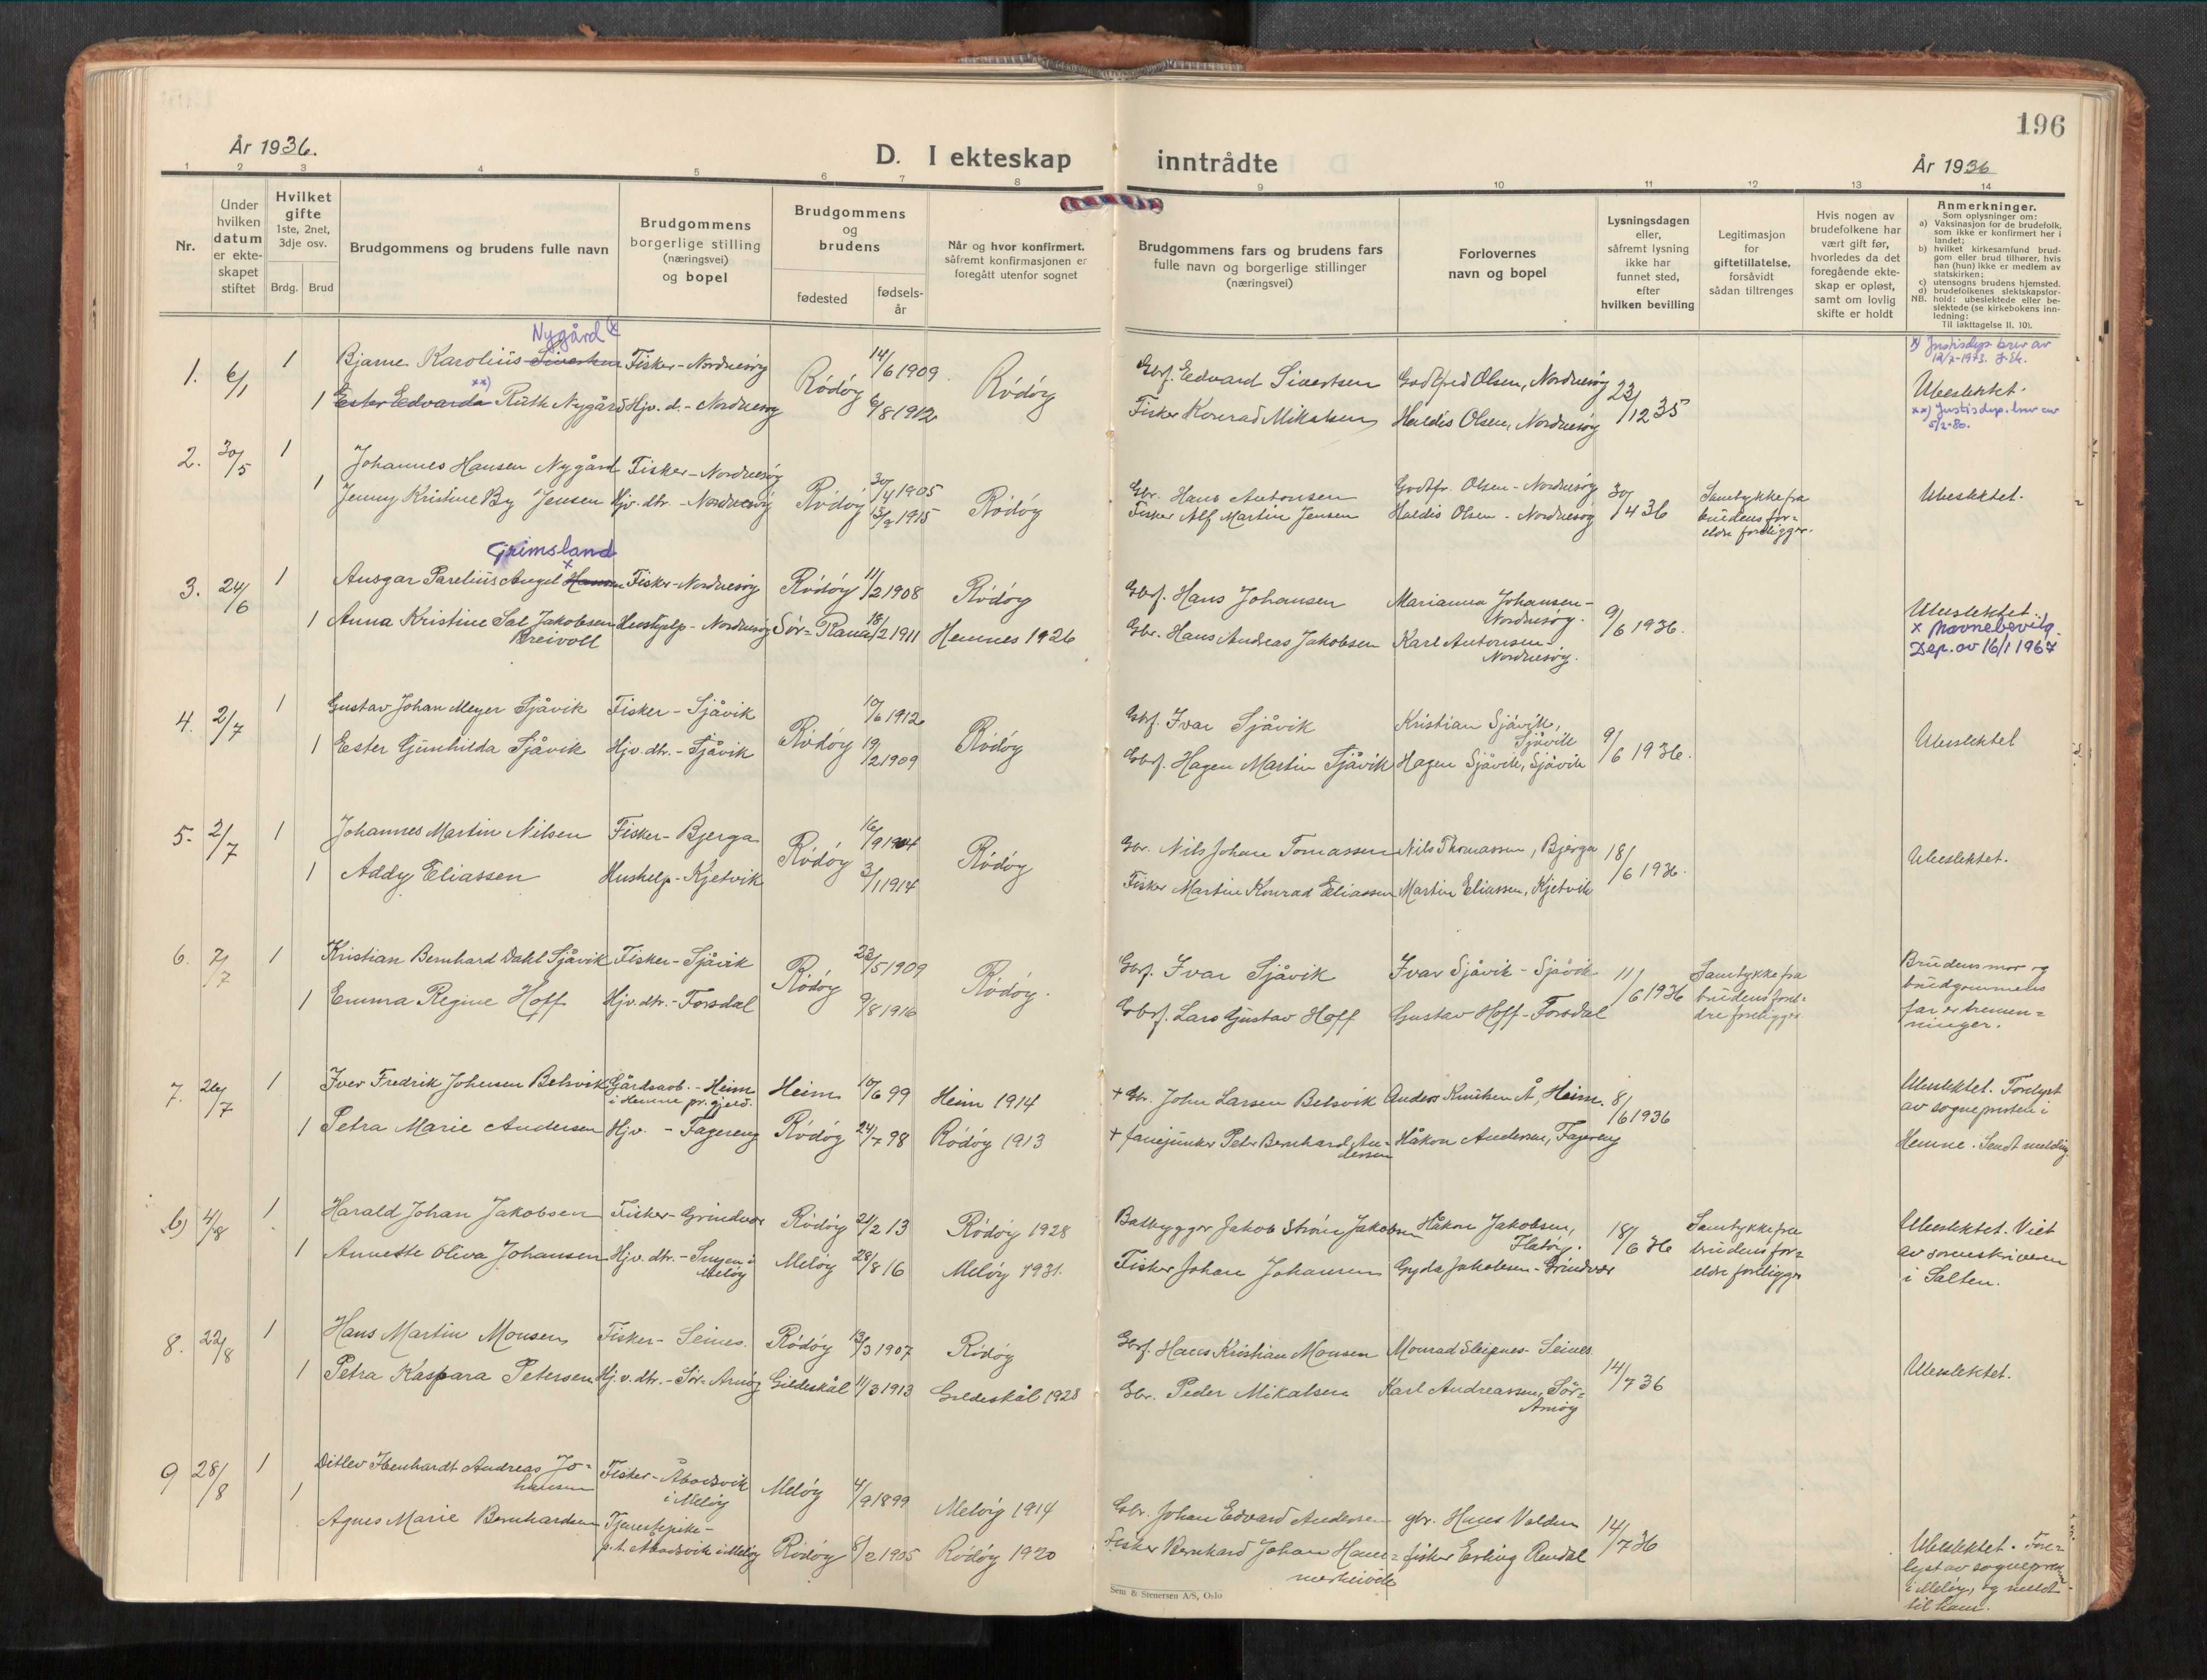 196
År 1936.
D. I ekteskap inntrådte
År 1936
1 2 3 4 5 6 7 8 9 10 11 12 13 14
Nr.
Under hvilken datum er ekteskapet stiftet
Hvilket gifte 1ste, 2net, 3dje osv.
Brdg. Brud
Brudgommens og brudens fulle navn
Brudgommens borgerlige stilling (næringsvei) og bopel
Brudgommens og brudens
fødested
fødselsår
Når og hvor konfirmert, såfremt konfirmasjonen er foregått utenfor sognet
Brudgommens fars og brudens fars fulle navn og borgerlige stillinger (næringsvei)
Forlovernes navn og bopel
Lysningsdagen eller, såfremt lysning ikke har funnet sted, efter hvilken bevilling
Legitimasjon for giftetillatelse, forsåvidt sådan tiltrenges
Hvis nogen av brudefolkene har vært gift før, hvorledes da det foregående ekteskap er opløst, samt om lovlig skifte er holdt
Anmerkninger.
Som oplysninger om:
a) Vaksinasjon for de brudefolk, som ikke er konfirmert her i landet;
b) hvilket kirkesamfund brudgom eller brud tilhører, hvis han (hun) ikke er medlem av statskirken;
c) utensogns brudens hjemsted.
d) brudefolkenes slektskapsforhold: ubeslektede eller beslektede (se kirkebokens innledning:
NB.
Til iakttagelse II. 10).
Nygård x
1. 6/1 1 Bjarne Karolius Sivertsen Fisker - Nordnesøy Rödöy 14/6 1909 Rödöy Gbrf. Edvard Sivertsen Godtfred Olsen, Nordnesøy 23/12 35 Ubeslektet.
x) Justisdep. brev av 12/2-1973.
1 Ester Edvarda xx) Ruth Nygård Hjv. d. - Nordnesøy 6/8 1912 Fisker Konrad Mikalsen Haldis Olsen, Nordnesøy
xx) Justisdep. brev av 5/2-80.
2. 30/5 1 Johannes Hansen Nygård Fisker - Nordnesøy Rödöy 30/4 1905 Rödöy Gbr. Hans Antonsen Godtfr. Olsen - Nordnesøy 30/4 36 Samtykke fra brudens foreldre foreligger. Ubeslektet.
1 Jenny Kristine By Jensen Hjv. dtr. - Nordnesøy 13/2 1915 Fisker Alf Martin Jensen Haldis Olsen - Nordnesøy
Grimsland
3. 24/6 1 Ansgar Parelius Angel x Hansen Fisker - Nordnesøy Rödöy 11/2 1908 Rödöy Gbrf. Hans Johansen Marianna Johansen - Nordnesøy. 9/6 1936. Ubeslektet.
x Navnebevilg. Dep. av 16/1 1967
1 Anna Kristine Sal Jakobsen Breivoll Hushjelp - Nordnesøy Sör-Rana 18/2 1911 Hemnes 1926 Gbr. Hans Andreas Jakobsen Karl Antonsen Nordnesøy.
4. 2/7 1 Gustav Johan Meyer Sjåvik Fisker - Sjåvik Rödöy 10/6 1912 Rödöy Gbrf. Ivar Sjåvik Kristian Sjåvik, Sjåvik 9/6 1936. Ubeslektet
1 Ester Gunhilda Sjåvik Hjv. dtr. - Sjåvik 19/2 1909 Gbrf. Hagen Martin Sjåvik Hagen Sjåvik, Sjåvik
5. 2/7 1 Johannes Martin Nilsen Fisker - Bjerga Rödöy 16/9 1904 Rödöy Gbr. Nils Johan Tomassen Nils Thomassen, Bjerga 18/6 1936. Ubeslektet.
1 Addy Eliassen Hushelp - Kjetvik 3/1 1914 Fisker Martin Konrad Eliassen Martin Eliassen, Kjetvik
6. 7/7 1 Kristian Bernhard Dahl Sjåvik Fisker - Sjåvik Rödöy 23/5 1909 Rödöy. Gbrf. Ivar Sjåvik Ivar Sjåvik - Sjåvik 11/6 1936 Samtykke fra brudens foreldre foreligger Brudens mor og brudgommens far er tremenninger.
1 Emma Regine Hoff Hjv. dtr. - Forsdal 9/8 1916 Gbrf. Lars Gustav Hoff Gustav Hoff - Forsdal
7. 26/7 1 Iver Fredrik Johnsen Belsvik Gårdsarb. - Heim i Hemne pr.gjeld. Heim 10/6 99 Heim 1914 + Gbr. John Larsen Belsvik Anders Knutsen Å, Heim. 8/6 1936 Ubeslektet. Forelyst av sognepresten i Hemne. Sendt melding.
1 Petra Marie Andersen Hjv. - Fagereng Rödöy 24/7 98 Rödöy 1913 + fanejunker Peter Bernhard Andersen Håkon Andersen, Fagereng
b) 4/8 1 Harald Johan Jakobsen Fisker - Grindvær Rödöy 21/2 13 Rödöy 1928 Båtbygger Jakob Strøm Jakobsen Håkon Jakobsen, Flatöy. 18/6 36 Samtykke fra brudens foreldre foreligger Ubeslektet. Viet av sorenskriveren i Salten.
1 Annette Oliva Johansen Hjv. dtr. - i Melöy Melöy 28/8 16 Melöy 1931. Fisker Johan Johansen Gyda Jakobsen - Grindvær
8. 22/8 1 Hans Martin Monsen Fisker - Seines. Rödöy 13/3 1907 Rödöy Gbrf. Hans Kristian Monsen Monrad Sleipnes - Seines 14/7 36 Ubeslektet.
1 Petra Kaspara Petersen Hj.v. dtr. - Sör-Arnöy Gildeskål 11/3 1913 Gildeskål 1928 Gbr. Peder Mikalsen Karl Andreassen, Sör-Arnöy
9 28/8 1 Ditlev Ibenhardt Andreas Johansen Fisker - Åbodsvik i Melöy Melöy 4/9 1899 Melöy 1914 Gbr. Johan Edvard Andersen gbr. Hans Valden 14/7 36 Ubeslektet. Forelyst av sogneprest i Melöy, og meldt til ham.
1 Agnes Marie Bernhardsen Tjenestepike - p.t. Åbodsvik i Melöy Rödöy 8/2 1905 Rödöy 1920 Fisker Bernhard Johan Hammerheivik fisker Erling Rendal
Sem & Stenersen A/S, Oslo